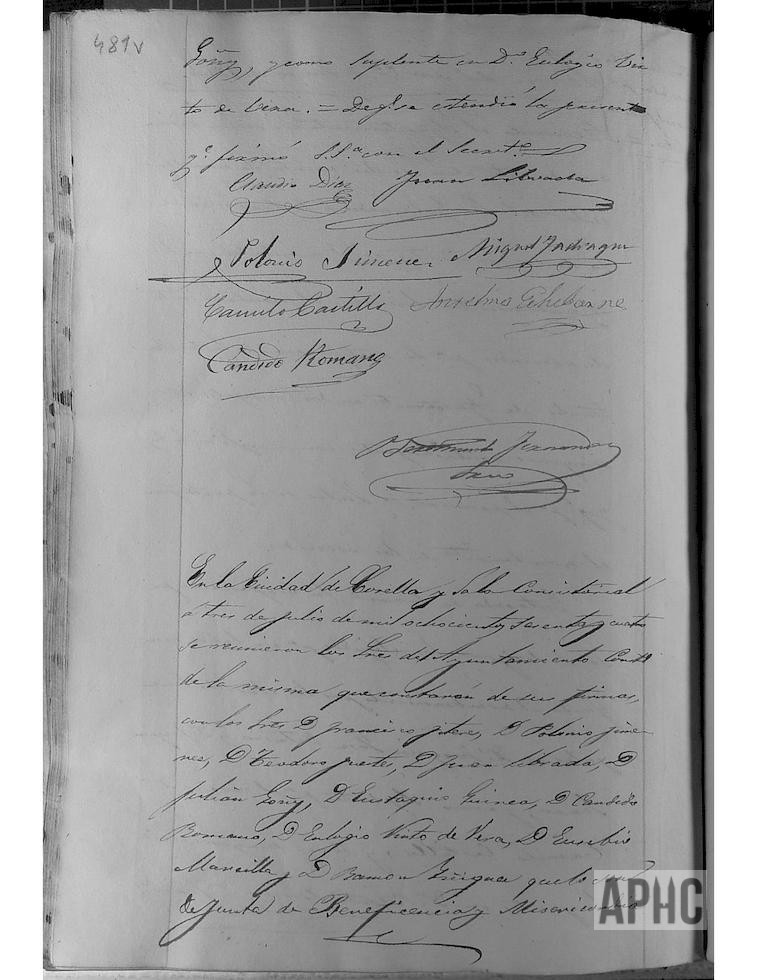 481v
Goñy, y como suplente en Dn. Eulogio Vin
to de Vera. = De q. se estendió la present
q. firmó S. Sa. con el Secreto.
Claudio Diaz Juan Librada
Polonio Jimenez Miguel
Camilo Castillo Anselmo
Candido Romano
Fernandez
En la Ciudad de Corella y Sala Consistorial
a tres de julio de mil ochocientos sesenta y cuatro
se reunieron los Sres del Ayuntamiento Constl
de la misma que constarán de sus firmas,
con los Sres D francisco D Polonio jime
nez, D Teodoro D Juan Librada, D
Julián Goñy, D Eustaquio Guinea, D Candido
Romano, D Eulogio Vinto de Vera, D Eusebio
Marcilla y D Ramon que lo son
de Junta de Beneficencia y Misericordia
APHC